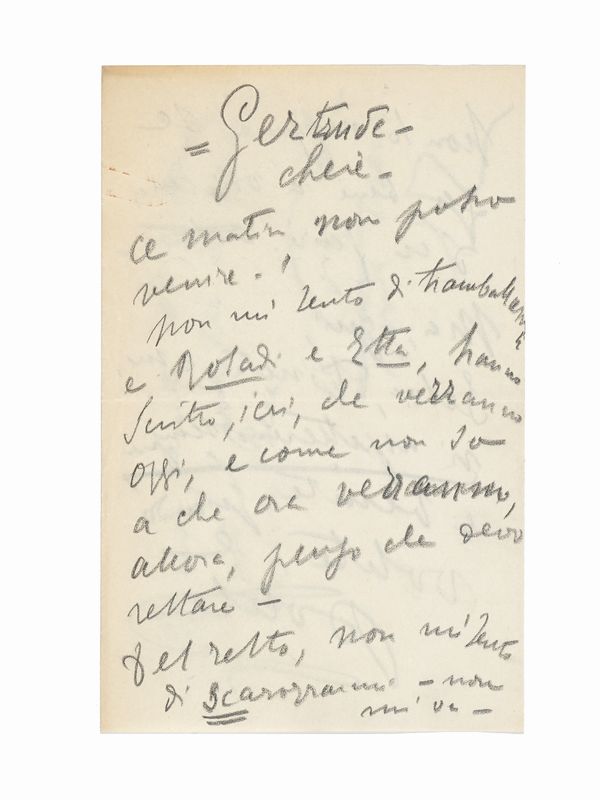 = Gertrude -
cherè -
ce matin non posso
venire - !
non mi sento di
e e Etta, hanno
scritto, ieri, che verranno
oggi, e come non so
a che ora verranno,
allora, penso che devo
restare -
Del resto, non mi sento
di - non
mi va -